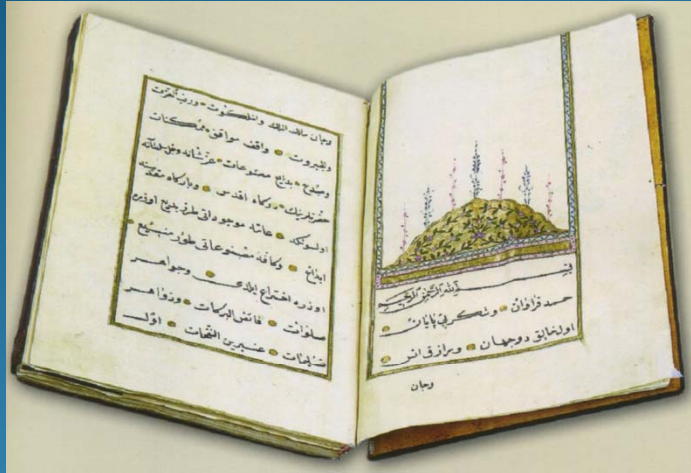 بسم الله الرحمن الرحيم
حمد فراوان وشكر بی پایان
اول خالق دوجهان ورازق انس
وجان
وجان مالك الملك والملكوت ورب العزت
والجبروت واقف مواقف ممكنات
ومبدع بدایع مصنوعات عزشانه وجل سلطانه
حضرتلرینك درکاه اقدس وبارکاه مقدسنه
اولسونکه عامه موجوداتی طرز بدیع اوزره
ابداع وکافه مصنوعاتی طور منیع
اوزره اختراع ایلدی وجواهر
صلوات فائض البركات وزواهر
تسلیمات عنبرین النفحات اول